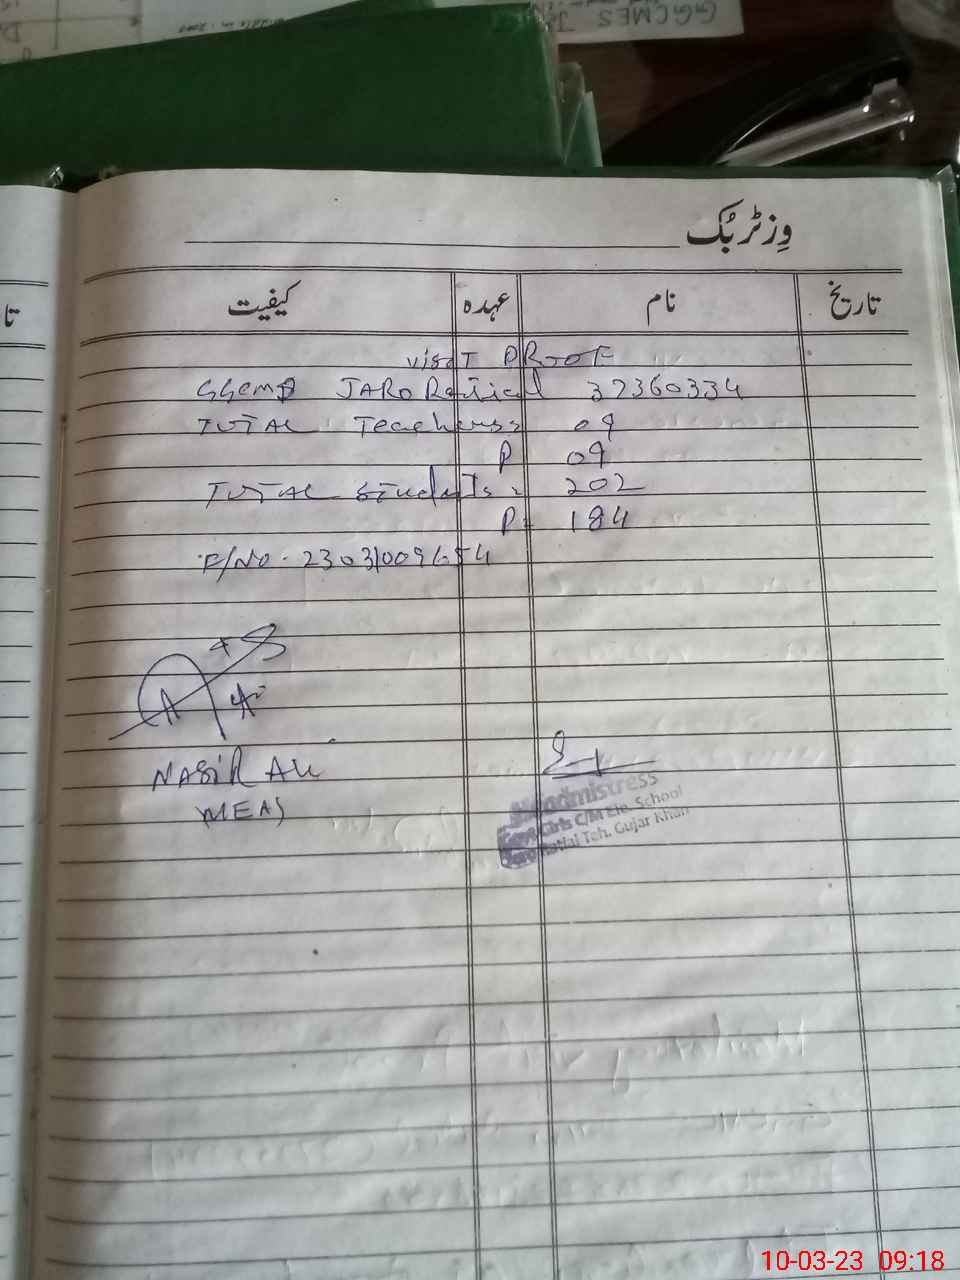 GGCMES J
وِزٹر بُک
تاریخ نام عہدہ کیفیت
تا
VISIT PROOF
GGCMES JARO Ratial 37360334
TOTAL Teachers: 09
P 09
TOTAL Students: 202
P: 184
NASIR ALI
MEA
Headmistress
Govt. Girls C/M Ele. School
Jaro Ratial Teh. Gujar Khan
10-03-23 09:18